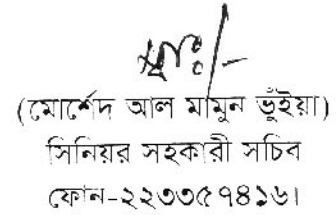 স্বাঃ/-
(মোর্শেদ আল মামুন ভুঁইয়া)
সিনিয়র সহকারী সচিব
ফোন-২২৩৩৫৭৪১৬।